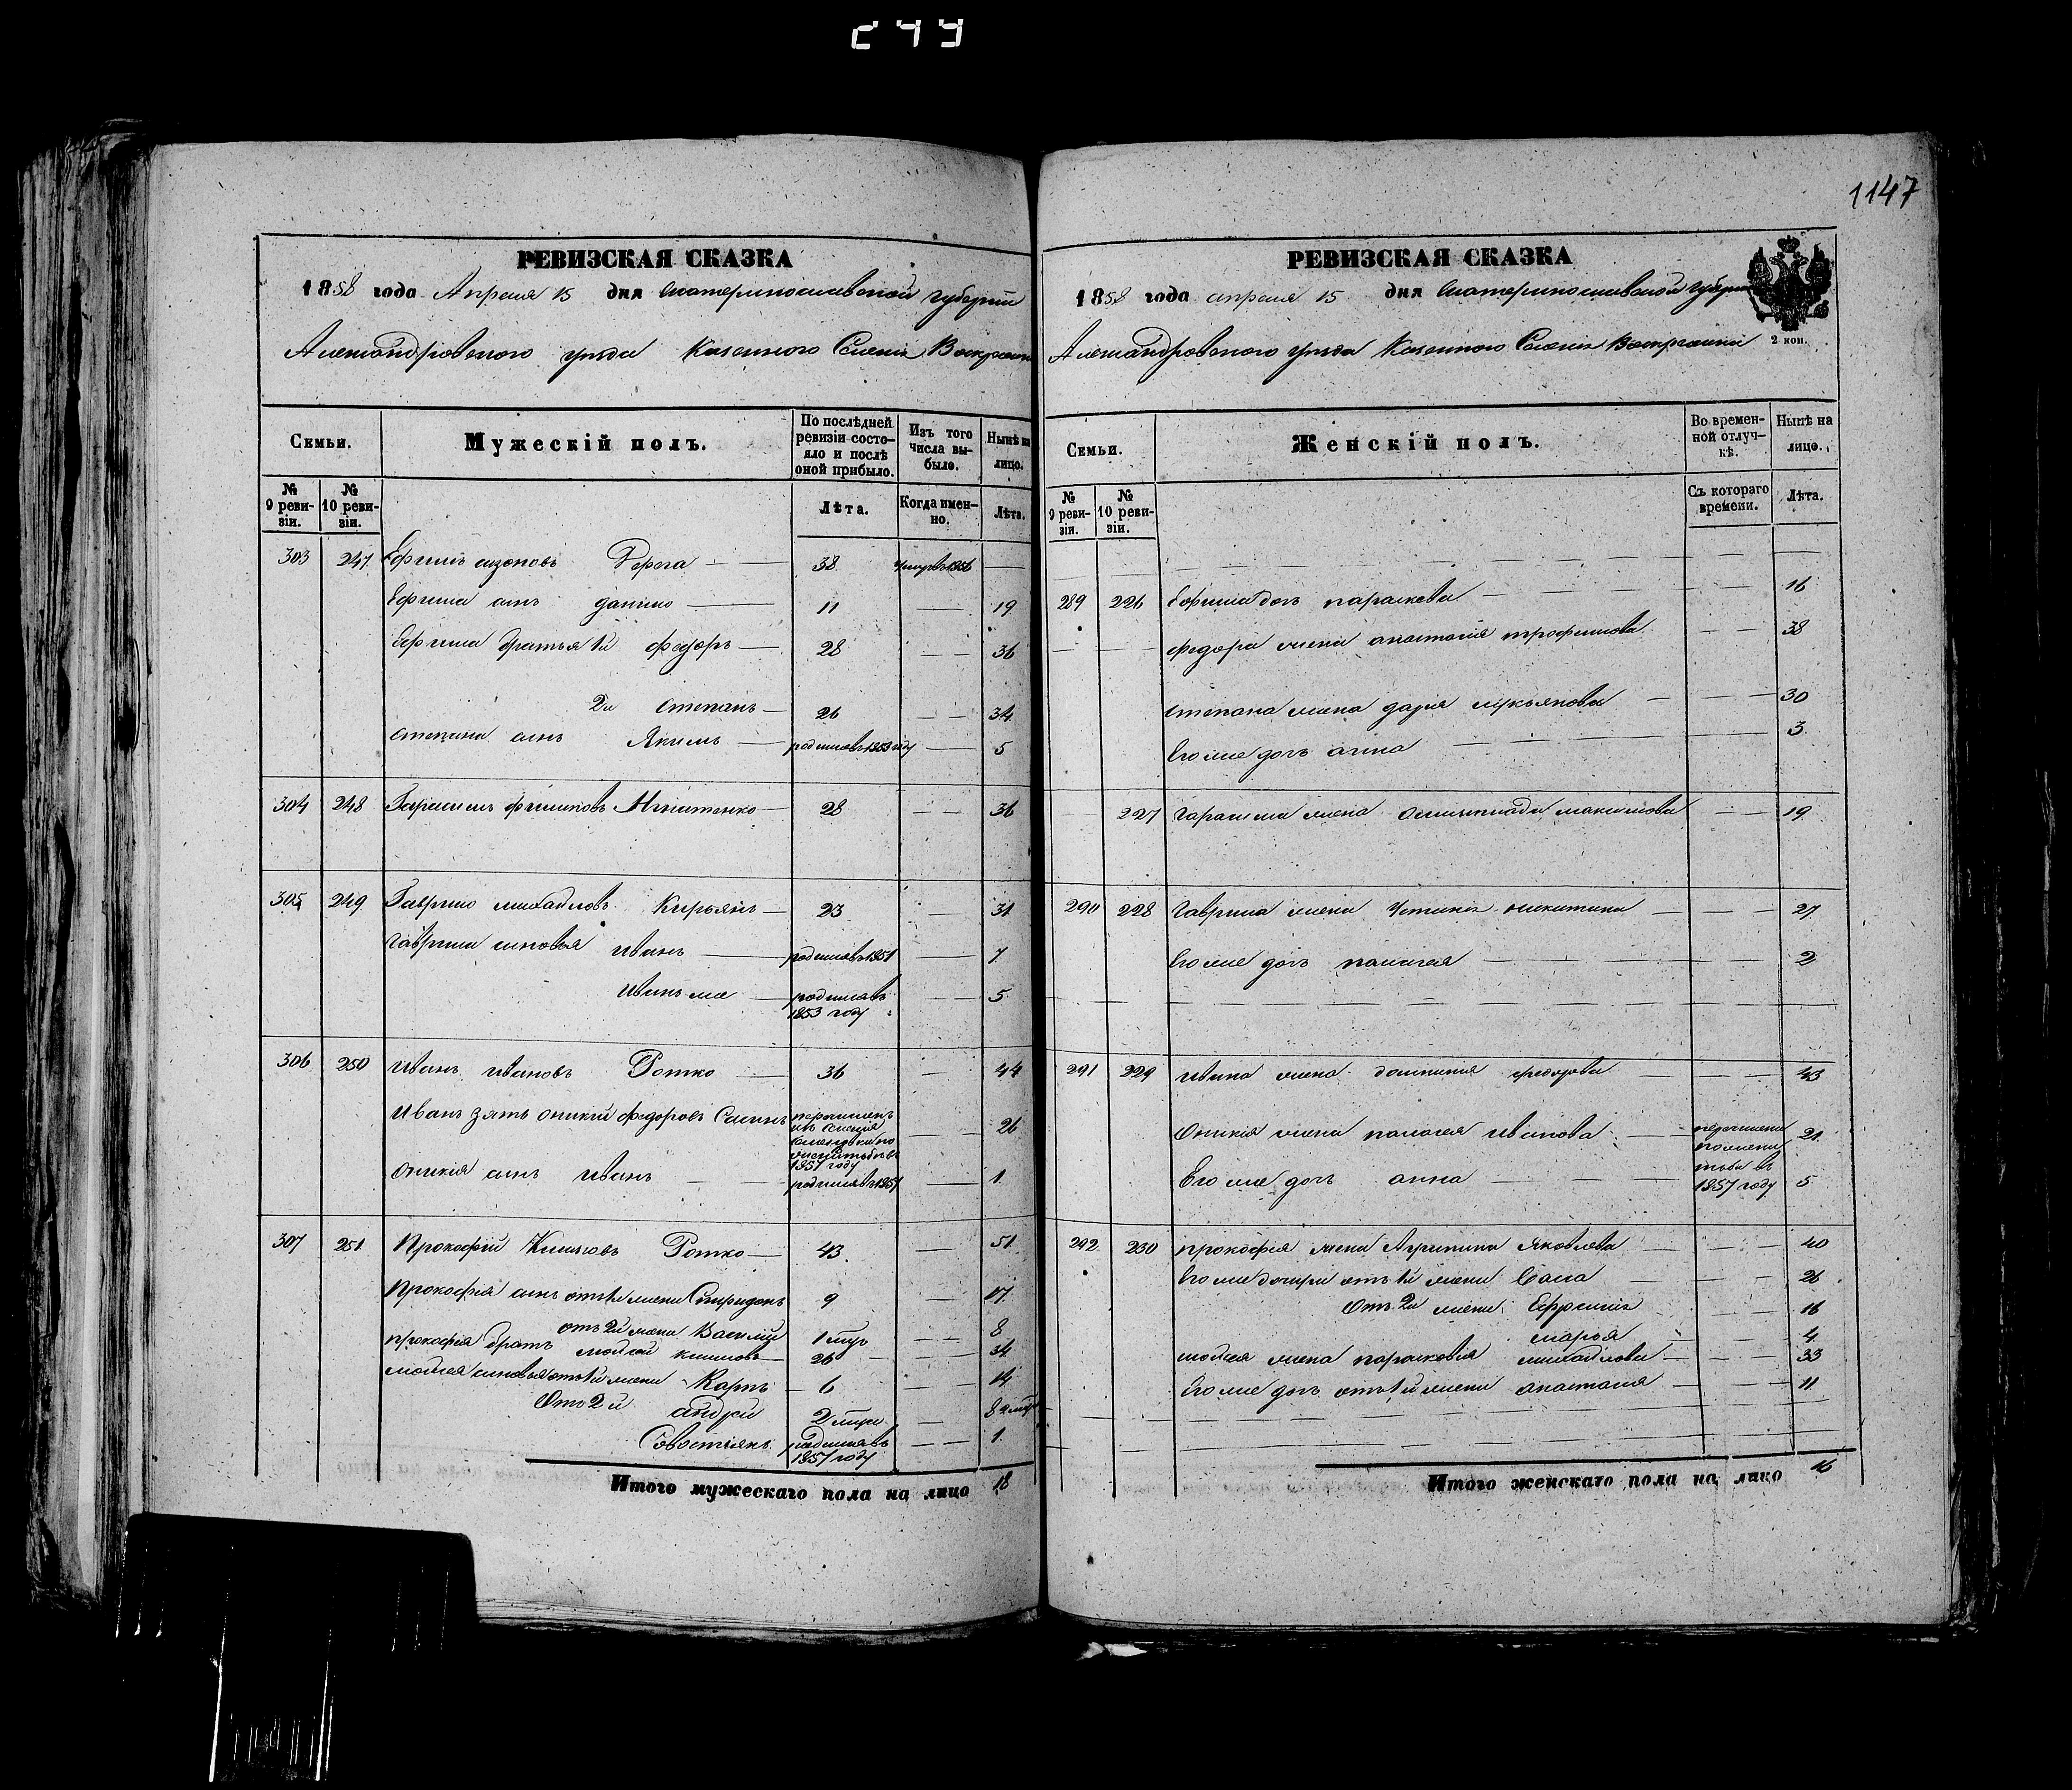 249
1147
РЕВИЗСКАЯ СКАЗКА
1858 года Апреля 15 дня Екатеринославской губернии
Александровского уезда Казенного Селения Воскресенки
Семьи.
Мужескій полъ.
По послѣдней ревизіи состо-
яло и послѣ
оной прибыло.
Изъ того
числа вы-
было.
Нынѣ на
лицо.
№
9 реви-
зіи.
№
10 реви-
зіи.
Лѣта.
Когда имен-
но.
Лѣта.
303 247 Ефимъ Дерега 38 умеръ 1856
Ефима сынъ данило 11 19
Ефима братья 1й федоръ 28 36
2й степанъ 26 34
степана сынъ Якимъ родился въ 1853 году 5
304 248 Гарасимъ Никитенко 28 36
305 249 Гаврило михайловъ Кирьянъ 23 31
гаврила сыновья иванъ родился въ 1851 7
иванъ же родился въ 5
1853 году
306 250 иванъ ивановъ Ротко 36 44
Ивана зять оникій федоровъ 26
перечисленъ
1857 году
оникія сынъ иванъ родился въ 1857 1
307 251 Прокофій Климовъ Ротко 43 51
Прокофія сынъ отъ 1й жены Спиридонъ 9 17
отъ 2й жены Василій 1 мцъ 8
прокофія братъ мойсей климовъ 26 34
мойсея сыновья отъ 1й жены Карпъ 6 14
Отъ 2й андрей 2 8
Савостьянъ родился въ 1
1857 году
Итого мужескаго пола на лицо 18
РЕВИЗСКАЯ СКАЗКА
1858 года апреля 15 дня Екатеринославской губернии
Александровского уезда Казенного Селения Воскресенки
2 коп.
Семьи.
Женскій полъ.
Во времен-
ной отлуч-
кѣ.
Нынѣ на
лицо.
№
9 реви-
зіи.
№
10 реви-
зіи.
Съ котораго
времени.
Лѣта.
289 226 Ефима дочь параскева 16
федора жена анастасия трофимова 38
степана жена дария лукьянова 30
Его же дочь анна 3
227 гарасима жена максимова 19
290 228 гаврила жена никитина 27
Его же дочь палагея 2
291 229 ивана жена федорова 43
Оникія жена палагея иванова 21
перечислена
по жени
тьбе въ
1857 году
Его же дочь анна 5
292 230 прокофія жена Агрипина Яковлева 40
Его же дочери отъ 1й жены 26
Отъ 2й жены 16
марья 4
мойсея жена парасковія михайлова 33
Его же дочь отъ 1й жены анастасия 11
Итого женскаго пола на лицо 16